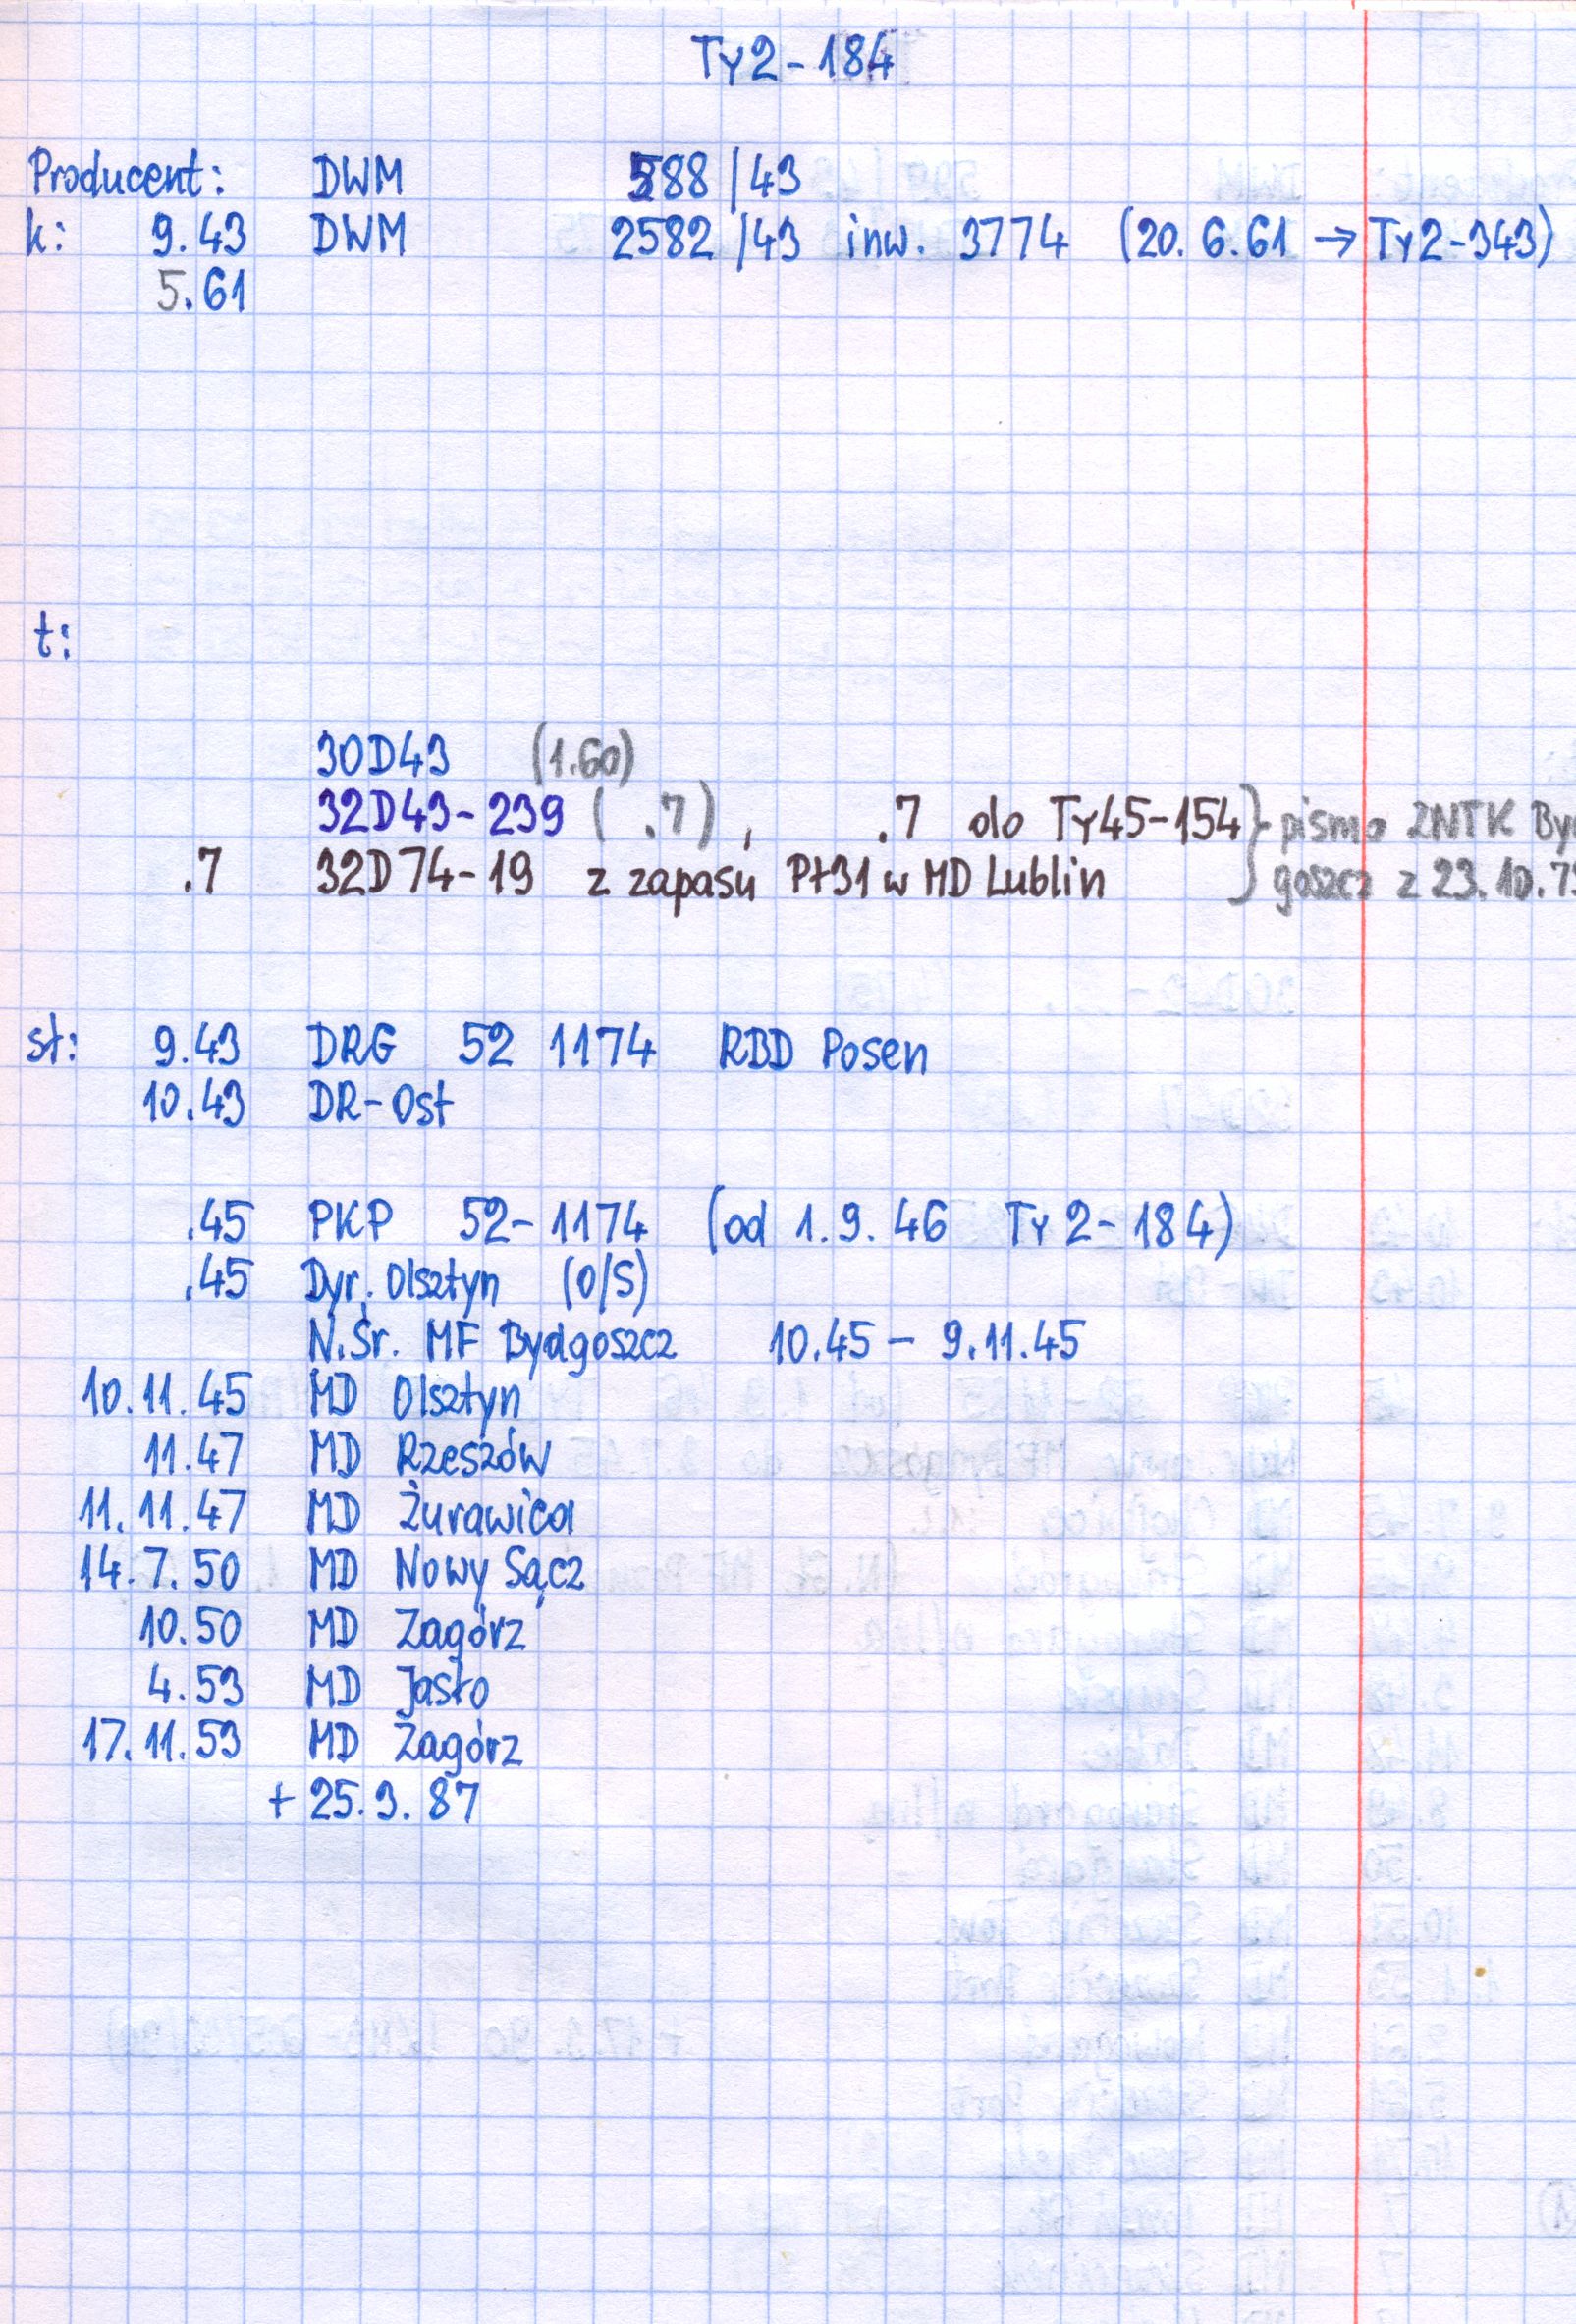 Ty2-184
Producent: DWM 588/43
k: 9.43 DWM 2582/43 inw. 3774 (20.6.61 → Ty2-343)
5.61
t:
30D43 (1.60)
32D43-239 ( .7), .7 do Ty45-154 } pismo ZNTK Byd
.7 32D74-19 z zapasu Pt31 w MD Lublin goszcz z 23.10.7
st: 9.43 DRG 52 1174 RBD Posen
10.43 DR-Ost
.45 PKP 52-1174 (od 1.9.46 Ty2-184)
.45 Dyr. Olsztyn (O/S)
N.Śr. MF Bydgoszcz 10.45 - 9.11.45
10.11.45 MD Olsztyn
11.47 MD Rzeszów
11.11.47 MD Żurawica
14.7.50 MD Nowy Sącz
10.50 MD Zagórz
4.53 MD Jasło
17.11.53 MD Zagórz
+ 25.3.87